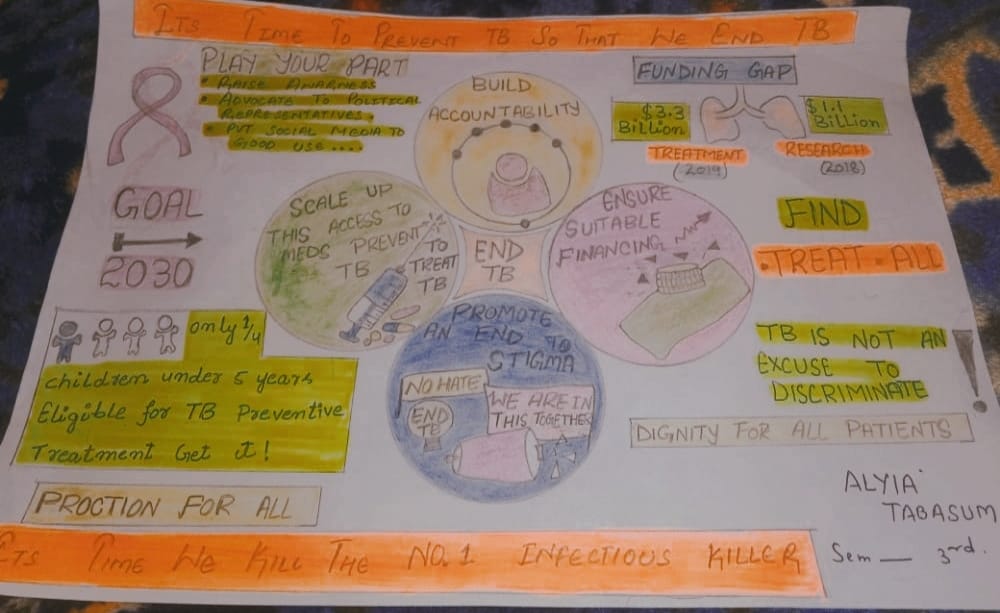 ITS TIME TO PREVENT TB SO THAT WE END TB
PLAY YOUR PART
• RAISE AWARNESS
• ADVOCATE TO POLITICAL
REPRESENTATIVES.
• PUT SOCIAL MEDIA TO
GOOD USE....
BUILD
ACCOUNTABILITY
FUNDING GAP
$3.3
Billion
$1.1
Billion
TREATMENT
(2019)
RESEARCH
(2018)
GOAL
2030
SCALE UP
THIS ACCESS TO
MEDS PREVENT
TB
TO
TREAT
TB
END
TB
ENSURE
SUITABLE
FINANCING
FIND
•TREAT•ALL
PROMOTE
AN END TO
STIGMA
NO HATE
WE ARE IN
THIS TOGETHER
END
TB
only 1/4
children under 5 years
Eligible for TB Preventive
Treatment Get it!
TB IS NOT AN
EXCUSE TO
DISCRIMINATE
!
DIGNITY FOR ALL PATIENTS
PROCTION FOR ALL
ALYIA
TABASUM
Sem — 3rd.
ITS TIME WE KILL THE NO.1 INFECTIOUS KILLER